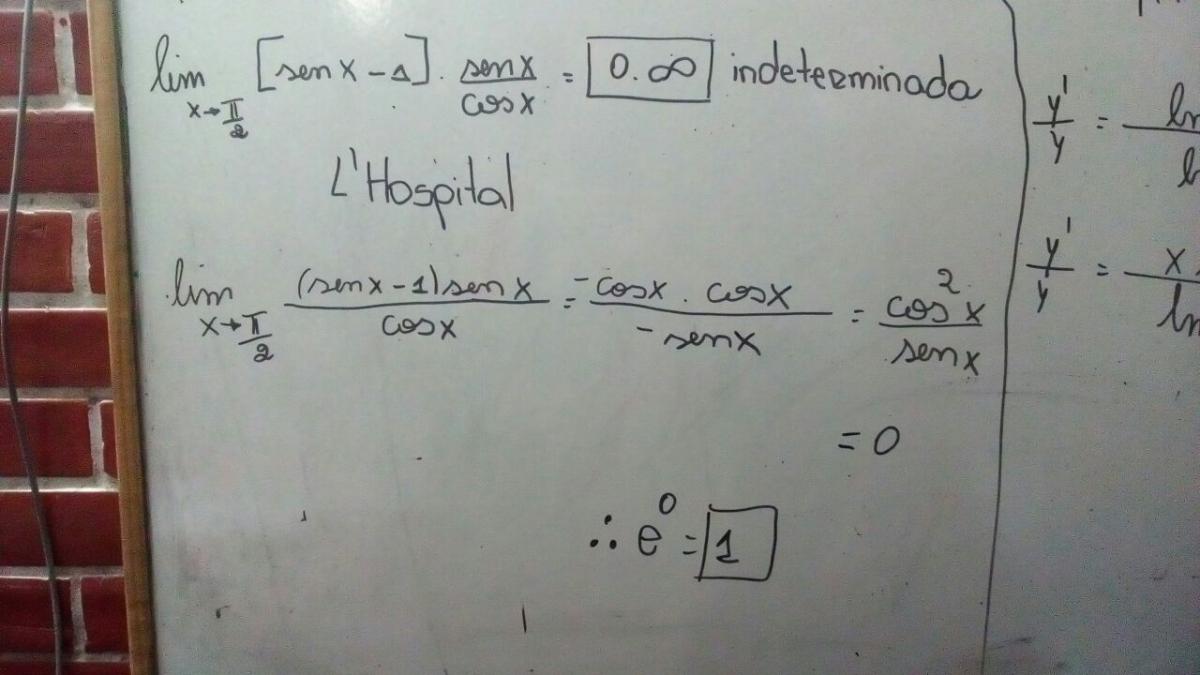 lim x→π/2 [sen x - 1] · sen x / cos x = 0.∞ indeterminada
L'Hospital
lim x→π/2 (sen x - 1) sen x / cos x = -cos x . cos x / -sen x = cos² x / sen x
= 0
∴ e⁰ = 1
y' / y = ln
y' / y = x / ln